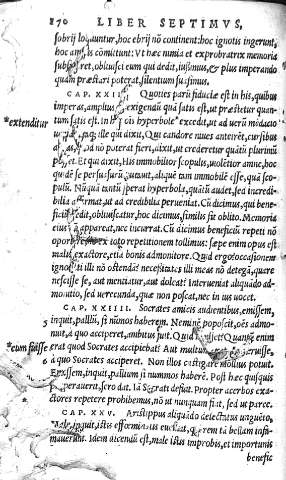 170 LIBER SEPTIMVS,
sobrij loquuntur, hoc ebrij nō continent: hoc ignotis ingerunt,
hoc amicis cōmittunt: Vt hæc nimia et exprobratrix memoria
obliuisci eum qui dedit, iussimus, & plus imperando
quàm præstari poterat, silentium suasimus.
CAP. XXIII. Quoties parū fiduciæ est in his, quibus
imperas, amplius exigendū quā satis est, ut præstetur quan-
*extenditur tum satis est. In hoc oīs hyperbole* excedit, ut ad uerū mēdacio
ueniat. Itaq; ille qui dixit, Qui candore niues anteirēt, cursibus
auras. Quod nō poterat fieri, dixit, ut crederetur quātū plurimū
posset. Et qui dixit, His immobilior scopulis, uiolētior amne, hoc
quidē se persuasurū putauit, aliquē tam immobilē esse, quā scopulū.
Nūquā tantū sperat hyperbola, quātū audet, sed incredi-
bilia affirmat, ut ad credibilia perueniat. Cū dicimus, qui bene-
ficiū dedit, obliuiscatur, hoc dicimus, similis sit oblito. Memoria
eius nō appareat, nec incurrat. Cū dicimus beneficiū repeti nō
oportere, non ex toto repetitionem tollimus: sæpe enim opus est
malis, exactore, etiā bonis admonitore. Quid ergo? occasionem
ignoranti illi nō ostendā? necessitates illi meas nō detegā, quare
nescisse se, aut mentiatur, aut doleat? Interueniat aliquādo ad-
monitio, sed uerecunda, quæ non poscat, nec in ius uocet.
CAP. XXIIII. Socrates amicis audientibus, emissem,
inquit, palliū, si nūmos haberem. Neminē poposcit, oēs admo-
nuit, à quo acciperet, ambitus fuit. Quid nisi esset? Quantū enim
*cum fuisse erat quod Socrates accipiebat? At multum
à quo Socrates acciperet. Non illos castigare mollius potuit.
Emissem, inquit, pallium si nummos haberē. Post hæc quisquis
properauerit, sero dat. iā Socrati defuit. Propter acerbos exa-
ctores repetere prohibemus, nō ut nunquam fiat, sed ut parce.
CAP. XXV. Aristippus aliquādo delectatus unguēto,
Male, inquit, istis effœminatis eueniat, qui rem tā bellam infa-
mauerunt. Idem dicendū est, male istis improbis, et importunis
benefic